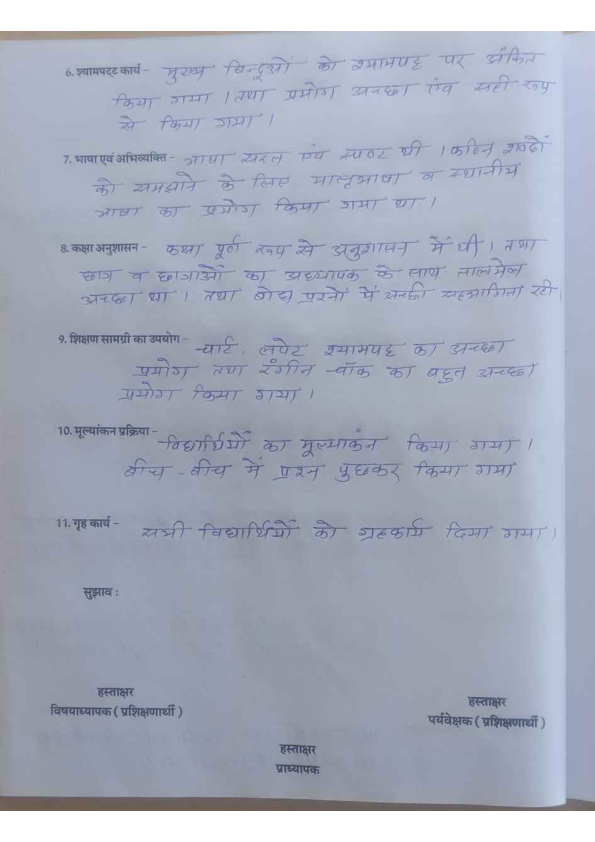 6. श्यामपट्ट कार्य - मुख्य बिन्दूओं को श्यामपट्ट पर अंकित
किया गया । तथा प्रयोग अच्छा एंव सही रूप
से किया गया ।
7. भाषा एवं अभिव्यक्ति - भाषा सरल एंव स्पष्ट थी । कठिन शब्दों
को समझाने के लिए मातृभाषा व स्थानीय
भाषा का प्रयोग किया गया था ।
8. कक्षा अनुशासन - कक्षा पूर्ण रूप से अनुशासन में थी । तथा
छात्र व छात्राओं का अध्यापक के साथ तालमेल
अच्छा था । तथा बोध प्रश्नों में अच्छी सहभागिता रही ।
9. शिक्षण सामग्री का उपयोग - चार्ट, लपेट श्यामपट्ट का अच्छा
प्रयोग तथा रंगीन चॉक का बहुत अच्छा
प्रयोग किया गया ।
10. मूल्यांकन प्रक्रिया - विद्यार्थियों का मूल्याकंन किया गया ।
बीच - बीच में प्रश्न पुछकर किया गया
11. गृह कार्य - सभी विद्यार्थियों को ग्रहकार्य दिया गया ।
सुझाव :
हस्ताक्षर
विषयाध्यापक ( प्रशिक्षणार्थी )
हस्ताक्षर
पर्यवेक्षक ( प्रशिक्षणार्थी )
हस्ताक्षर
प्राध्यापक